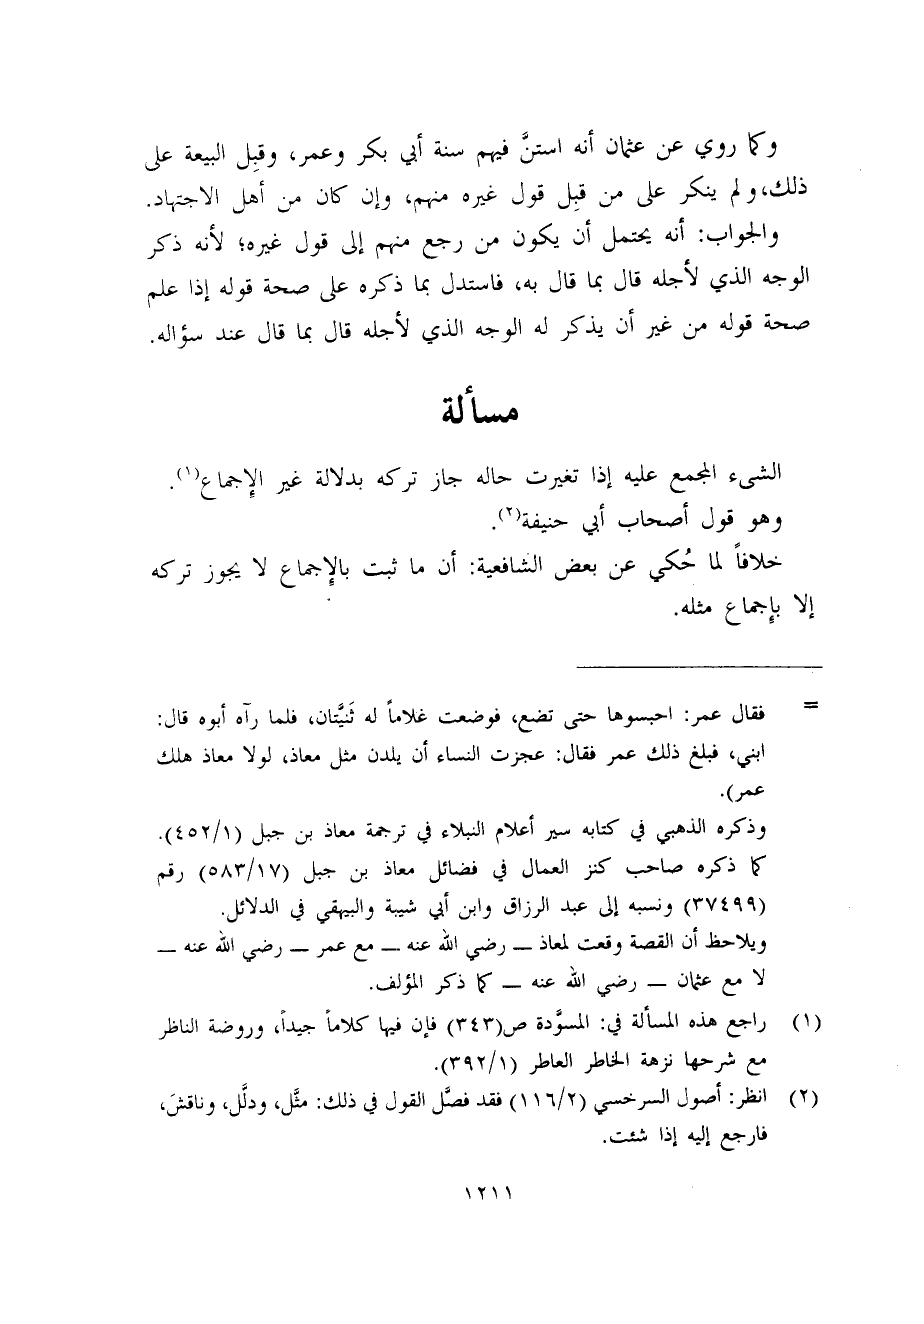 وكما روي عن عثمان أنه استنَّ فيهم سنة أبي بكر وعمر، وقبِل البيعة على
ذلك، ولم ينكر على من قبِل قول غيره منهم، وإن كان من أهل الاجتهاد.
والجواب: أنه يحتمل أن يكون من رجع منهم إلى قول غيره؛ لأنه ذكر
الوجه الذي لأجله قال بما قال به، فاستدل بما ذكره على صحة قوله إذا علم
صحة قوله من غير أن يذكر له الوجه الذي لأجله قال بما قال عند سؤاله.
مسألة
الشيء المجمع عليه إذا تغيرت حاله جاز تركه بدلالة غير الإجماع(١).
وهو قول أصحاب أبي حنيفة(٢).
خلافاً لما حُكي عن بعض الشافعية: أن ما ثبت بالإجماع لا يجوز تركه
إلا بإجماع مثله.
= فقال عمر: احبسوها حتى تضع، فوضعت غلاماً له ثَنيَّتان، فلما رآه أبوه قال:
ابني، فبلغ ذلك عمر فقال: عجزت النساء أن يلدن مثل معاذ، لولا معاذ هلك
عمر).
وذكره الذهبي في كتابه سير أعلام النبلاء في ترجمة معاذ بن جبل (٤٥٢/١).
كما ذكره صاحب كنز العمال في فضائل معاذ بن جبل (٥٨٣/١٧) رقم
(٣٧٤٩٩) ونسبه إلى عبد الرزاق وابن أبي شيبة والبيهقي في الدلائل.
ويلاحظ أن القصة وقعت لمعاذ ــ رضي الله عنه ــ مع عمر ــ رضي الله عنه ــ
لا مع عثمان ــ رضي الله عنه ــ كما ذكر المؤلف.
(١) راجع هذه المسألة في: المسوَّدة ص(٣٤٣) فإن فيها كلاماً جيداً، وروضة الناظر
مع شرحها نزهة الخاطر العاطر (٣٩٢/١).
(٢) انظر: أصول السرخسي (١١٦/٢) فقد فصَّل القول في ذلك: مثَّل، ودلَّل، وناقشَ،
فارجع إليه إذا شئت.
١٢١١